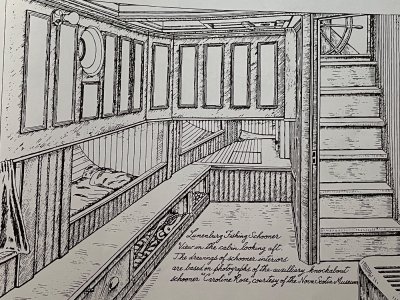 Lunenburg Fishing Schooner
View in the cabin looking aft.
The drawings of schooner interiors
are based on photographs of the auxilliary knockabout
schooner "Caroline Rose, courtesy of the Nova Scotia Museum